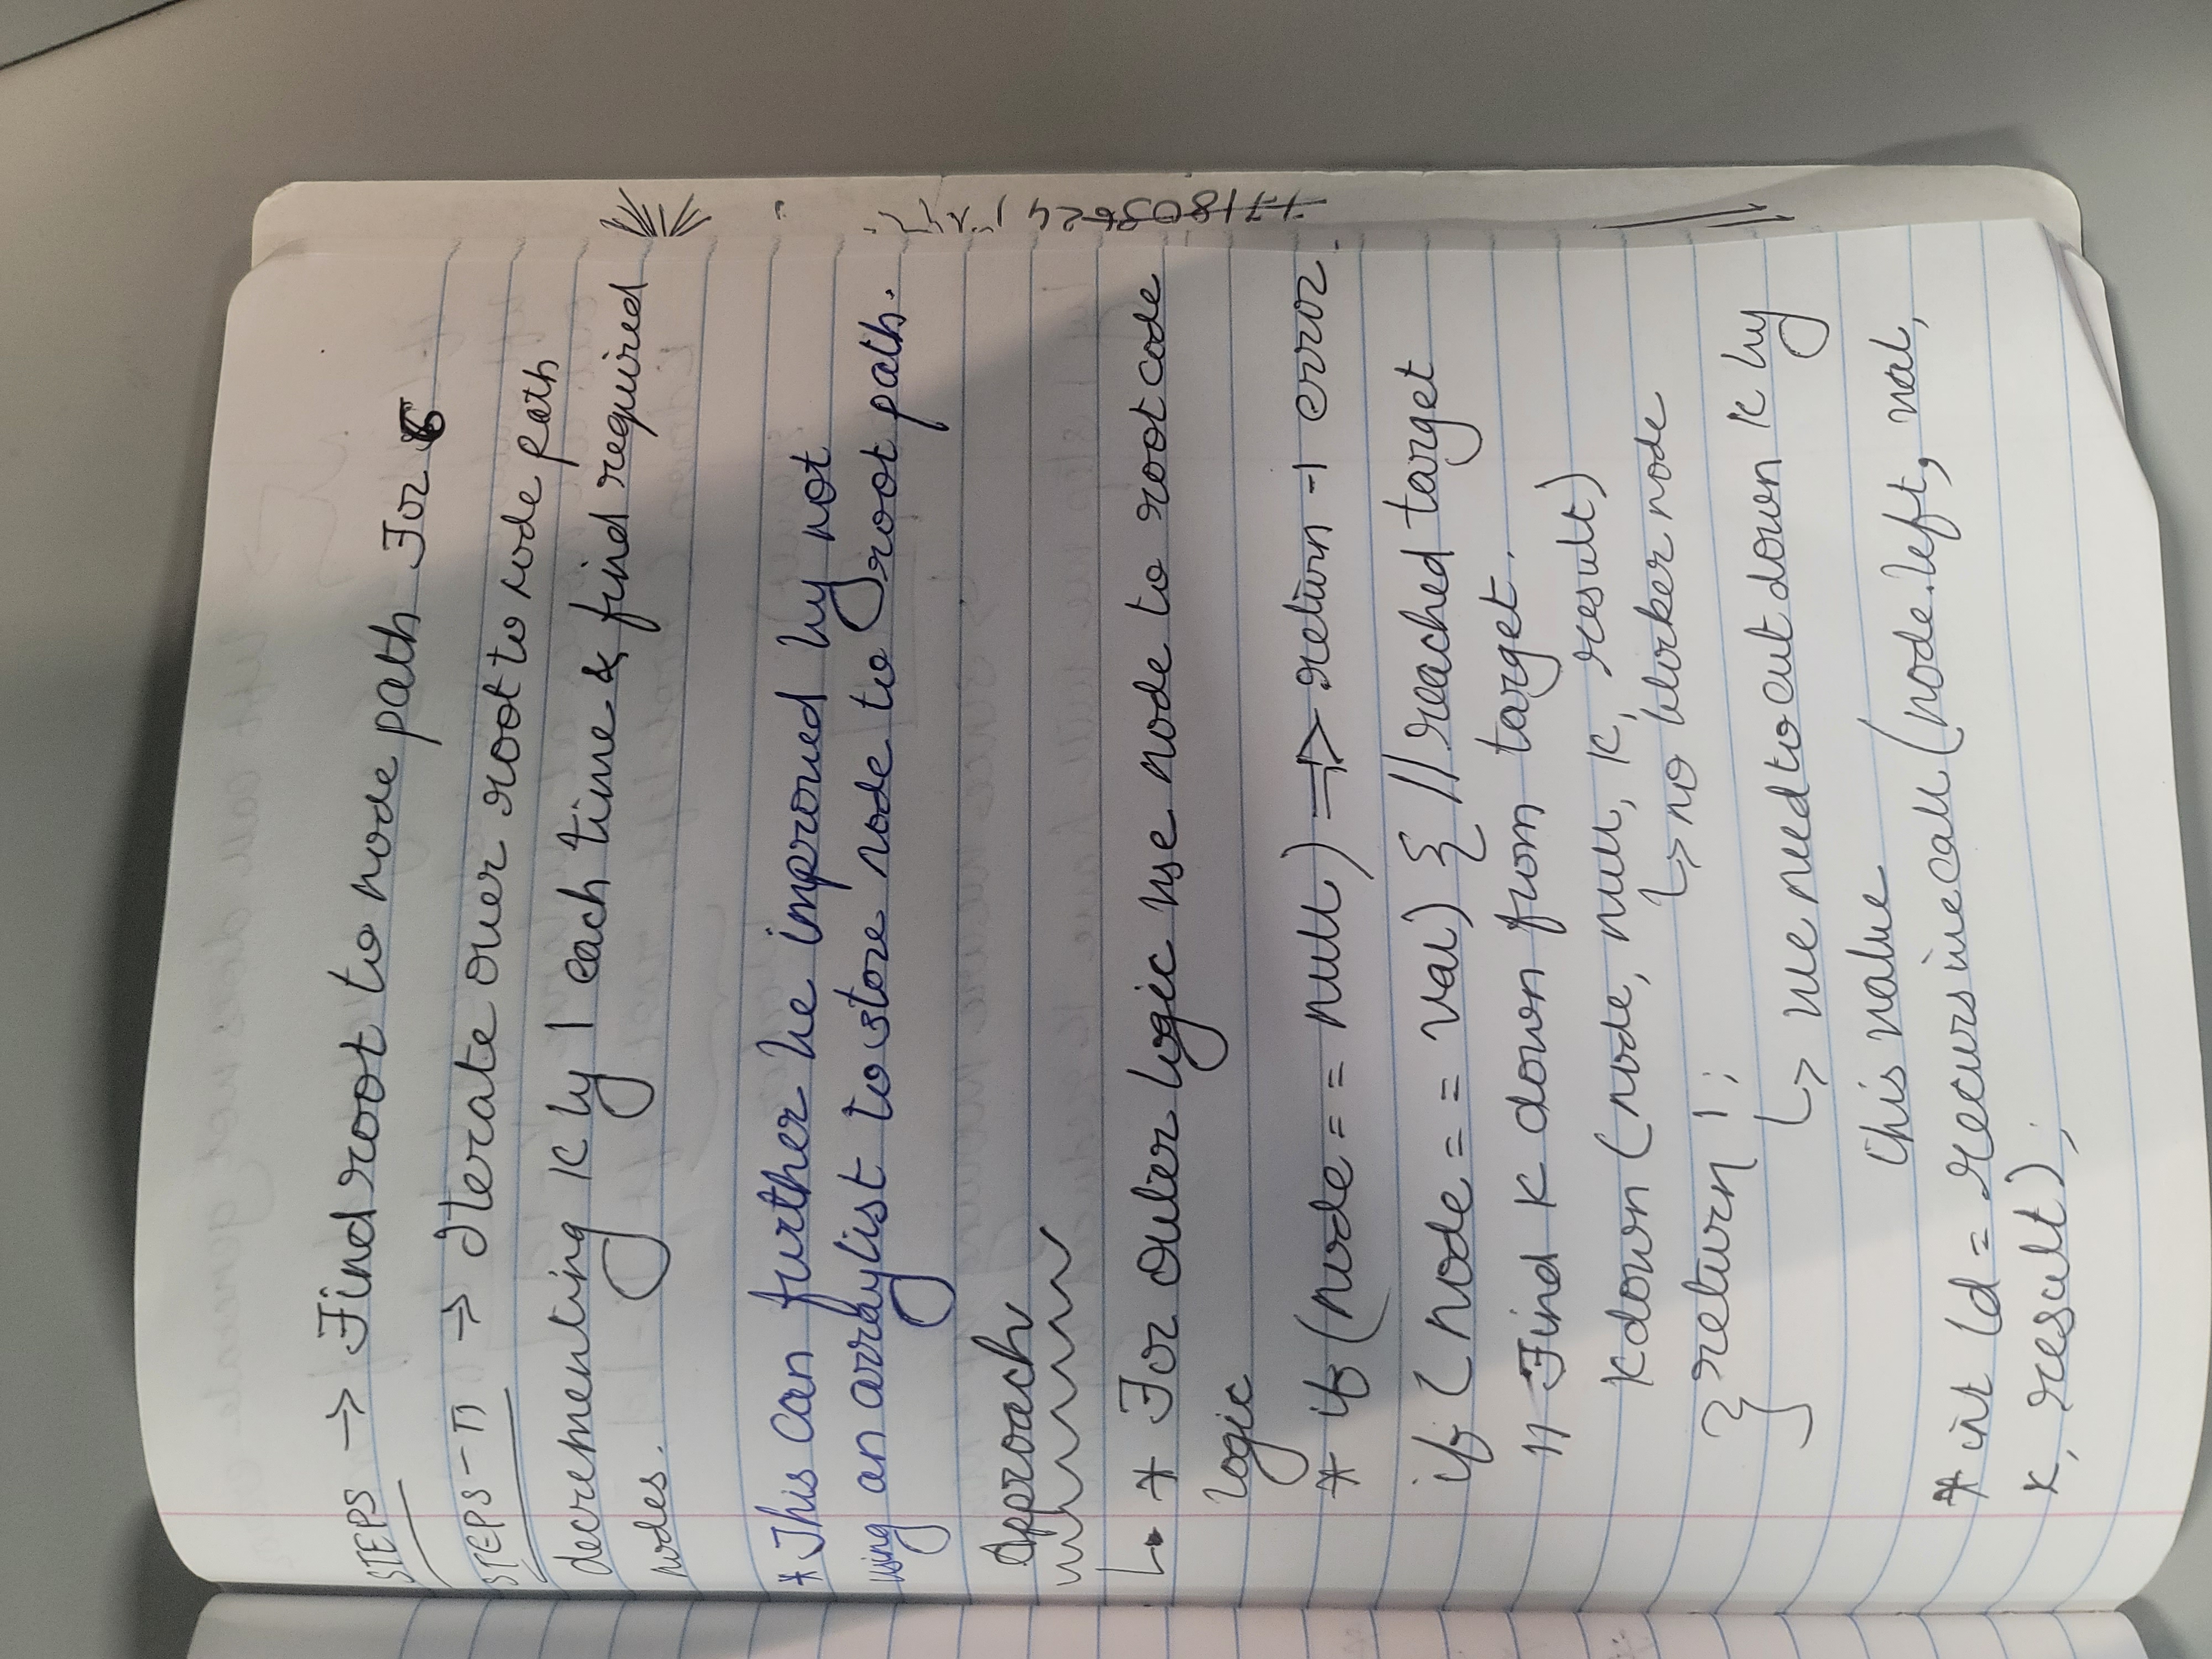 STEPS → Find root to node path For 8
STEPS-II → Iterate over root to node path
decrementing K by 1 each time & find required
nodes.
* This can further be improved by not
using an arraylist to store node to root path.
Approach
↳ * For outer logic use node to root code
logic
* if (node == null) ⇒ return -1 error.
if (node == val) { // reached target
1) Find K down from target.
Kdown (node, null, K, result)
↳ no blocker node
} return 1;
↳ we need to cut down K by
this value
* int ld = recursive call (node.left, val,
K, result);